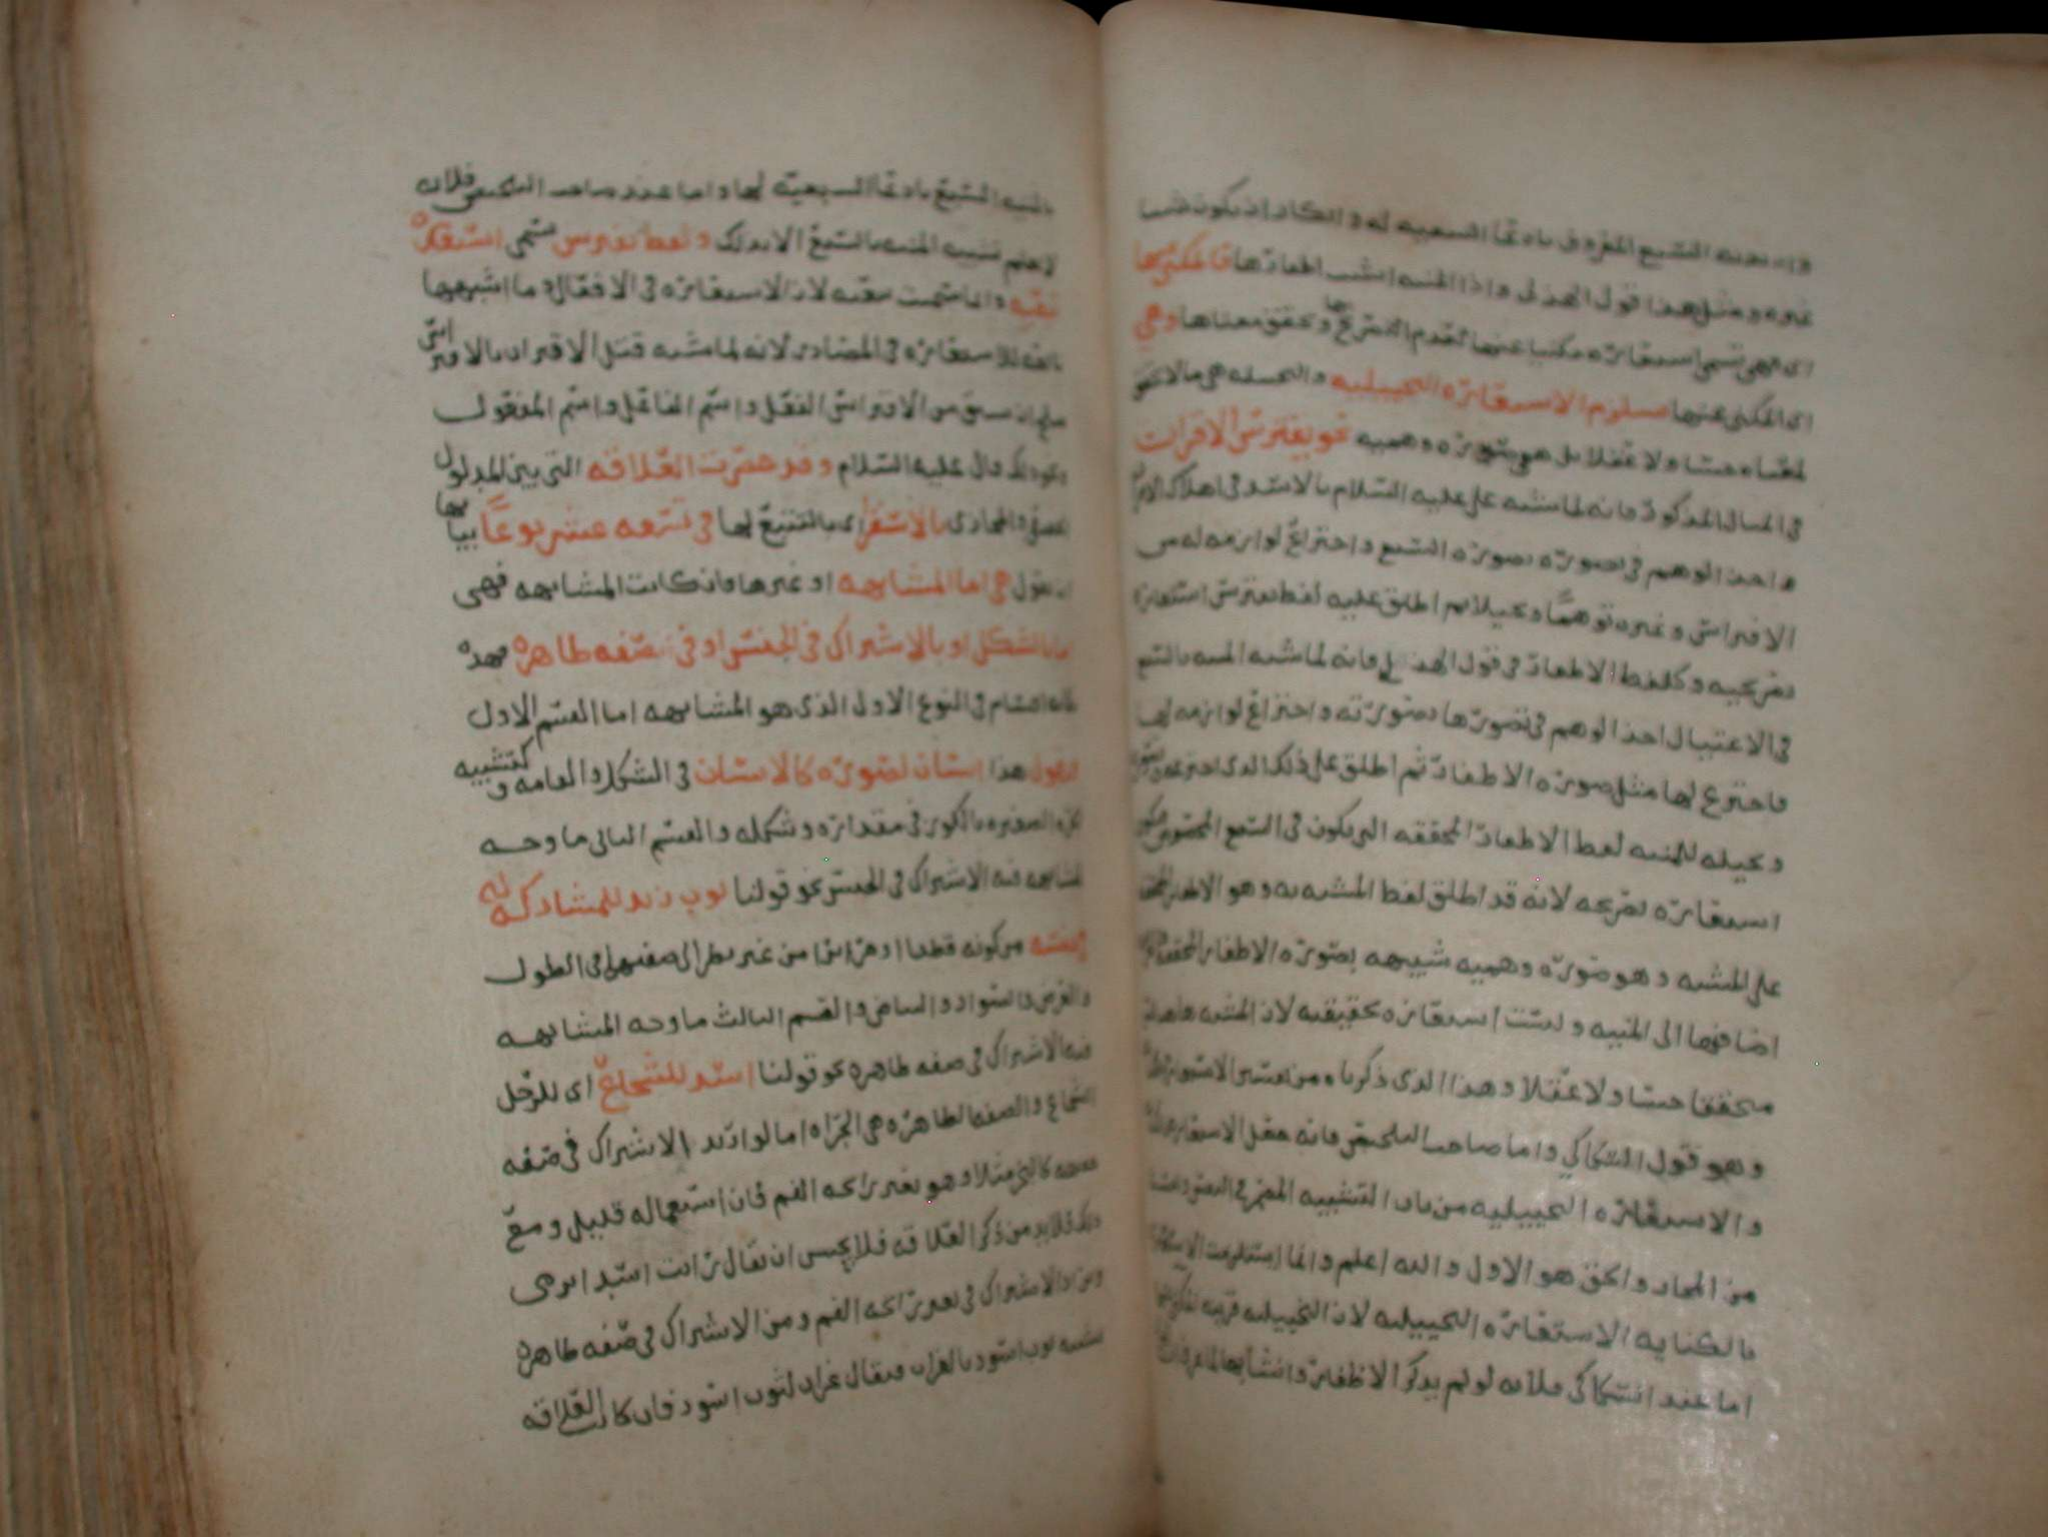 السبع المعروف بادعا السبعيه له وانكار ان يكون شيا
غيره ومثل هذا قول الهذلي واذا المنيه انشبت اظفارها فالمكني عنها
اي فهي تسمى استعاره مكنيا عنها لعدم التصريح بها وتحقق معناها وهي
اي المكني عنها مستلزم الاستعاره التخييليه والتخييليه هي ما لا تحقق
لمعناه حسا ولا عقلا بل هو صوره وهميه نحو يفترس الاقران
في المثال المذكور فانه لما شبه علي عليه السلام بالاسد في اهلاك الاقران
اخذ الوهم في تصويره بصوره السبع واختراع لوازمه له من
الافتراس وغيره توهما وتخييلا ثم اطلق عليه لفظ يفترس استعاره
تصريحيه وكلفظ الاظفار في قول الهذلي فانه لما شبه المنيه بالسبع
في الاغتيال اخذ الوهم في تصويرها بصورته واختراع لوازمه لها
فاخترع لها مثل صوره الاظفار ثم اطلق على ذلك الذي اخترعه
وتخيله للمنيه لفظ الاظفار المحققه التي تكون في السبع المحسوس
استعاره تصريحيه لانه قد اطلق لفظ المشبه به وهو الاظفار المحققه
على المشبه وهو صوره وهميه شبيهه بصوره الاظفار المحققه
اضافتها الى المنيه وليست استعاره تحقيقيه لان المشبه هاهنا
متحققا حسا ولا عقلا وهذا الذي ذكرناه من تفسير
وهو قول السكاكي واما صاحب التلخيص فانه جعل الاستعاره
والاستعاره التخييليه من باب التشبيه المضمر في النفس
من المجاز والحق هو الاول والله اعلم وانما استلزمت الاستعاره
بالكنايه الاستعاره التخييليه لان التخييليه قرينه
اما عند السكاكي فلانه لو لم يذكر الاظفار وانشابها
بالمنيه السبع بادعا السبعيه لها واما عند صاحب التلخيص فلانه
لا يعلم تشبيه المنيه بالسبع الا بذلك ولفظ يفترس تسمى استعاره
تبعيه وانما سميت تبعيه لان الاستعاره في الافعال وما اشبهها
تابعه للاستعاره في المصادر لانه لما شبه قتل الاقران بالافتراس
صلح ان يشتق من الافتراس الفعل واسم الفاعل واسم المفعول
ونحو ذلك قال عليه السلام وقد حصرت العلاقه التي بين المدلول
الحقيقي والمجازي بالاستقراء اي بالتتبع لها في تسعه عشر نوعا بيانها
ان نقول هي اما المشابهه او غيرها فان كانت المشابهه فهي
اما بالشكل او بالاشتراك في الجنس او في صفه ظاهره فهذه
ثلاثه اقسام في النوع الاول الذي هو المشابهه اما القسم الاول
فنقول هذا انسان لصوره كالانسان في الشكل والقامه وكتشبيه
الكره الصغيره بالكبرى في مقداره وشكله والقسم الثاني ما وجه
المشابهه فيه الاشتراك في الجنس نحو قولنا ثوب زيد للمشارك له
في جنسه من كونه قطنا او حريرا من غير نظر الى صفتهما في الطول
والعرض والسواد والبياض والقسم الثالث ما وجه المشابهه
فيه الاشتراك في صفه ظاهره نحو قولنا اسد للشجاع اي للرجل
الشجاع والصفه الظاهره هي الجراه اما لو اريد الاشتراك في صفه
خفيه كالبخر مثلا وهو تغير رائحه الفم فان استعماله قليل ومع
ذلك فلا بد من ذكر العلاقه فلا يحسن ان يقال رايت اسدا يرمي
ويراد الاشتراك في تغير رائحه الفم ومن الاشتراك في صفه ظاهره
تشبيه ثوب اسود بالغراب فيقال غراب لثوب اسود فان كانت العلاقه